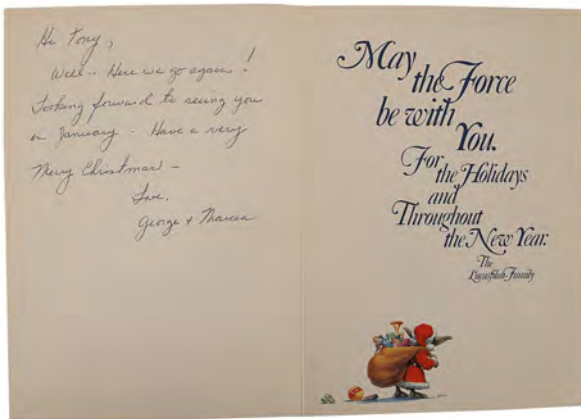 Hi Tony,
Well -- Here we go again!
Looking forward to seeing you
in January - Have a very
Merry Christmas -
Love,
George + Marcia
May
the Force
be with
You.
For
the Holidays
and
Throughout
the New Year.
The
Lucasfilm Family